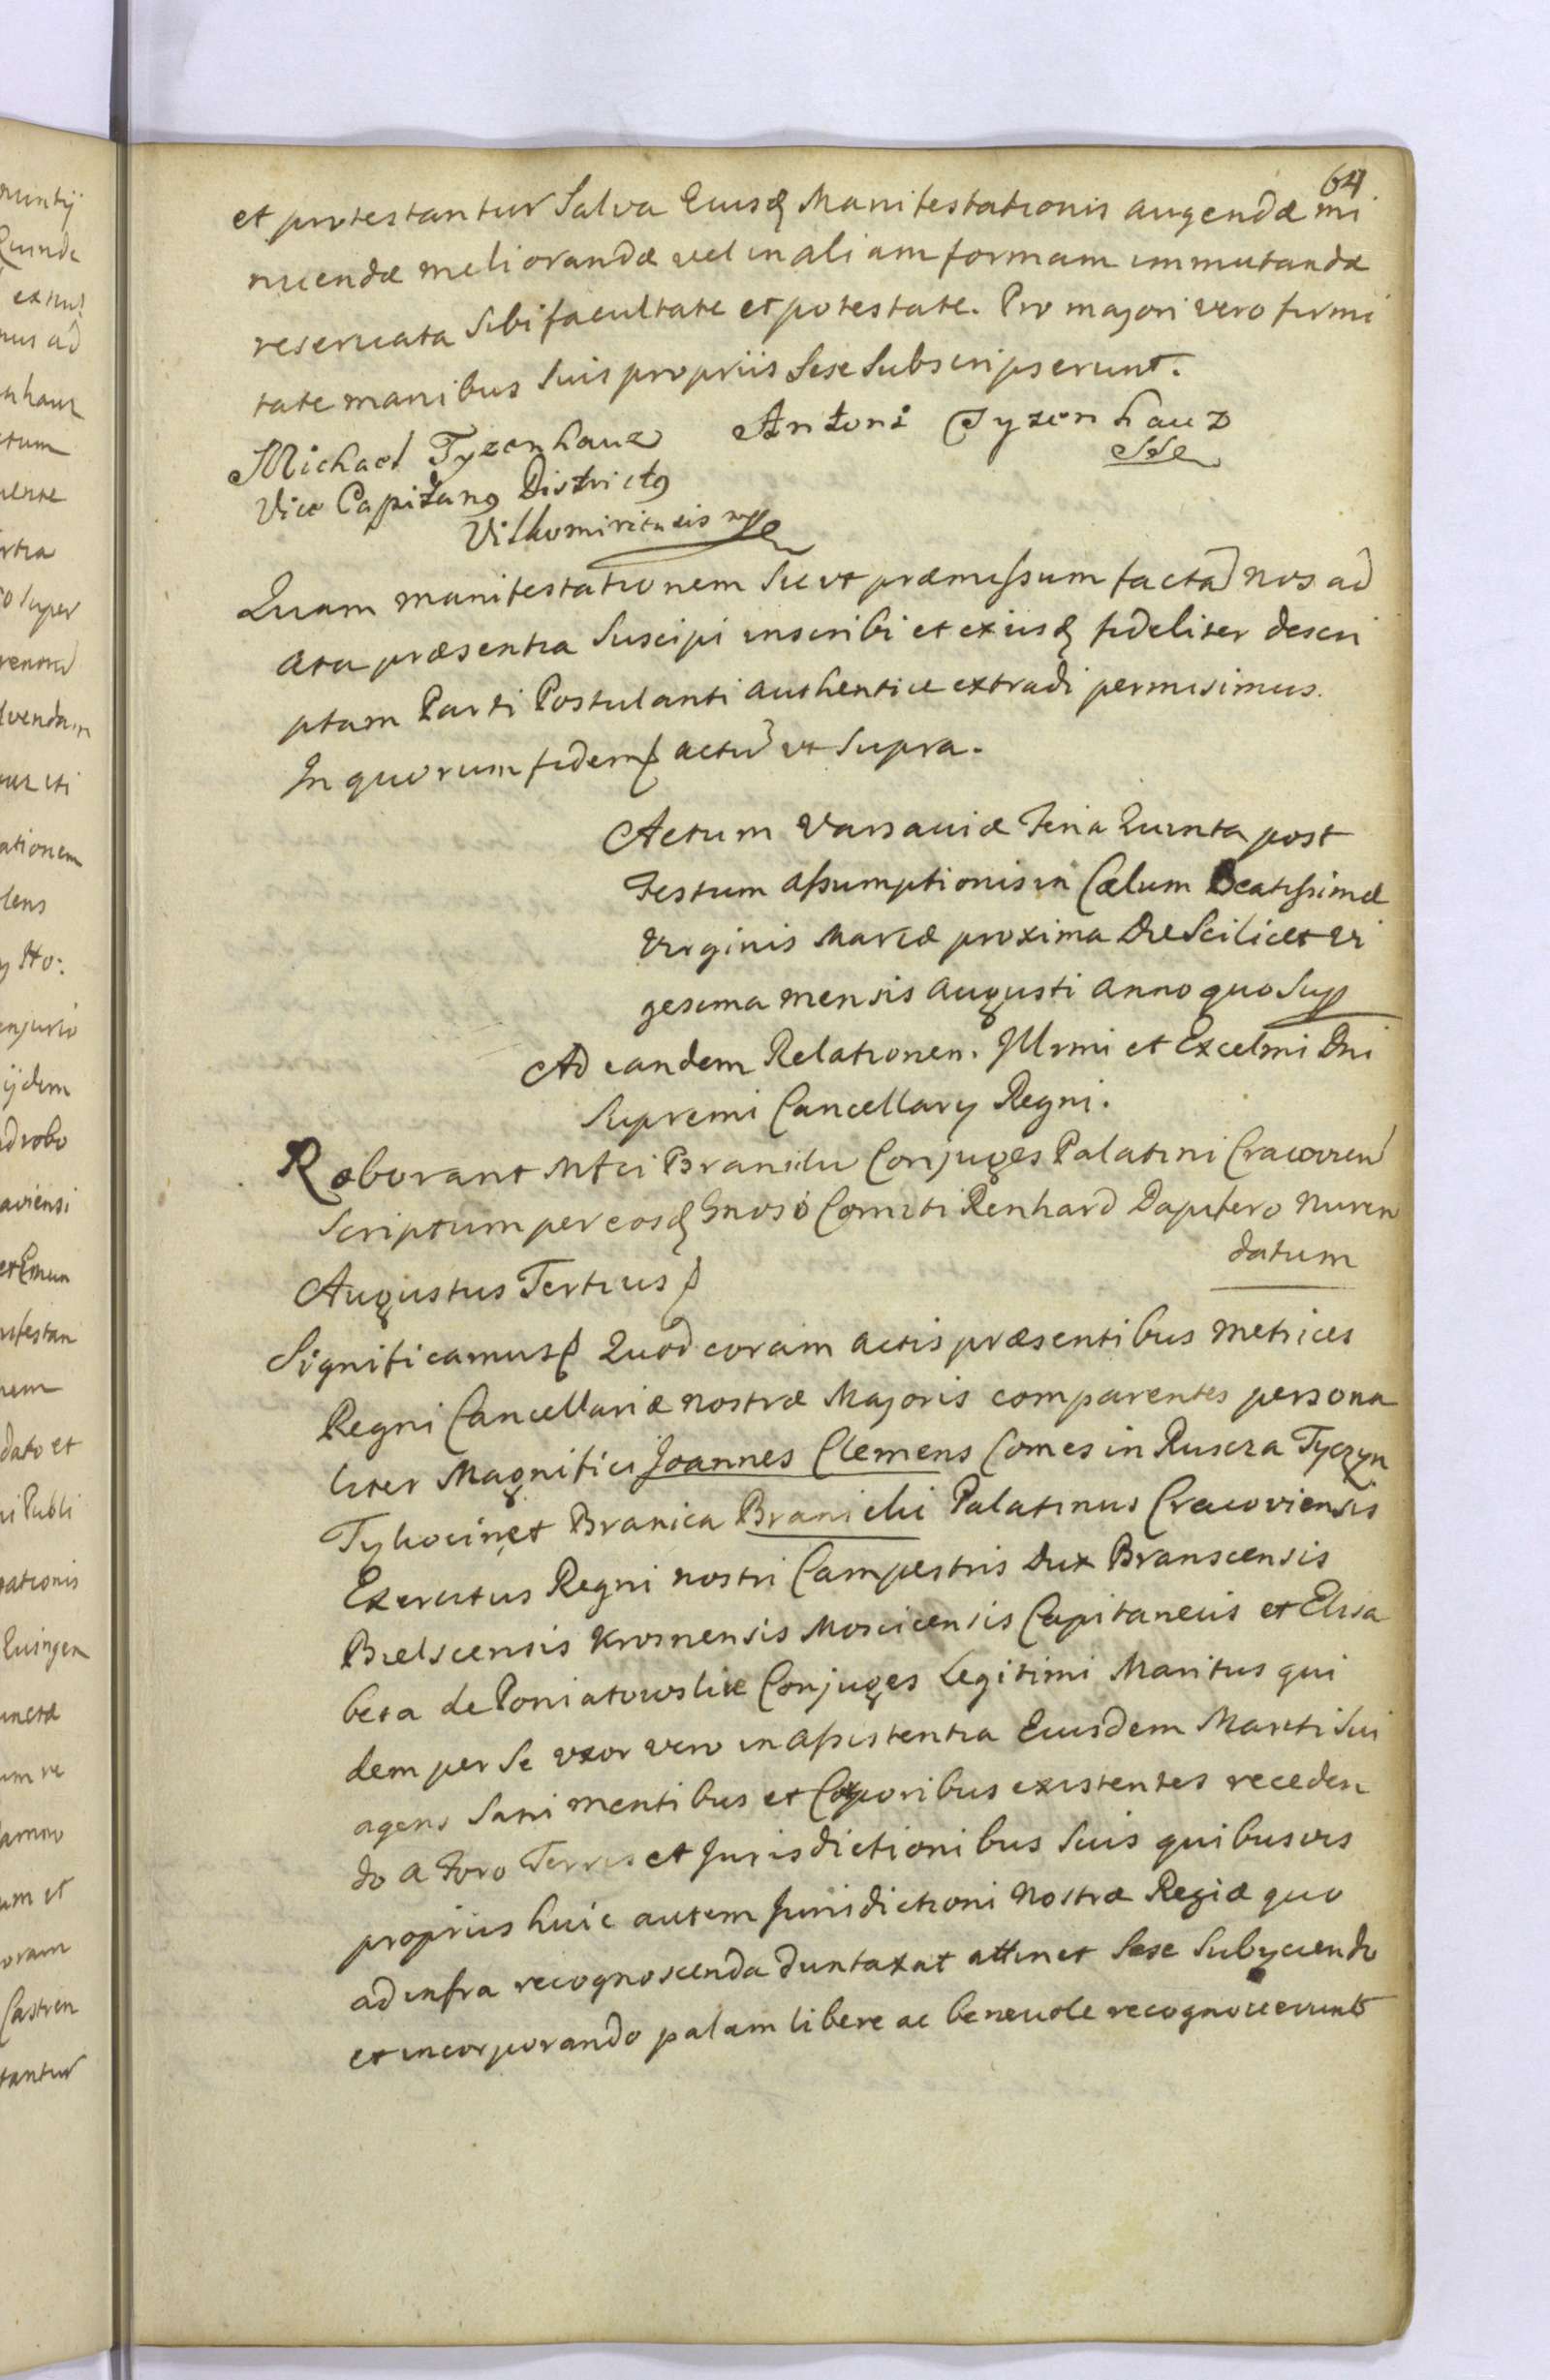 64
et protestantur Salva Eiusd Manifestationis augendæ mi
nuendæ meliorandæ vel in aliam formam immutandæ
reservata Sibi facultate et potestate. Pro majori vero firmi
tate manibus Suis propriis Sese Subscripserunt.
Michael Tyzenhauz Antoni Tyzenhauz
Vice Capitang Districtg
Vilkomiriensis mp
Quam manifestationem Sic ut præmissum factã nos ad
acta præsentia Suscipi inscribi et ex iisd fideliter descri
ptam Parti Postulanti authentice extradi permisimus.
In quorum fidem actũ ut Supra.
Actum Varsaviæ Feria Quinta post
Festum Assumptionis in Cælum Beatissimæ
Virginis Mariæ proxima Die Scilicet Vi
gesima mensis Augusti Anno quo Sup
Ad eandem Relationem Illrmi et Excelmi Dni
Supremi Cancellary Regni.
Roborant Mfci Braniclii Conjuges Palatini Cracovien
Scriptum per eosd Gnoso Comiti Renhard Dapifero Nuren
datum
Augustus Tertius
Significamus Quod coram actis præsentibus Metrices
Regni Cancellariæ nostræ Majoris comparentes persona
liter Magnifici Joannes Clemens Comes in Ruscza Tyczyn
Tykocin et Branica Braniclii Palatinus Cracoviensis
Exercitus Regni nostri Campestris Dux Branscensis
Bielscensis Krosnensis Moscicensis Capitaneus et Elisa
beta de Poniatowslie Conjuges Legitimi Maritus qui
dem per Se vxor vero in assistentia Eiusdem Mariti Sui
agens Sani mentibus et Corporibus existentes receden
do a Foro Terris et Jurisdictionibus Suis quibusvis
propriis huic autem Jurisdictioni Nostræ Regiæ quo
ad infra recognoscenda duntaxat attinet Sese Subyciendo
et incorporando palam libere ac benevole recognoverunt